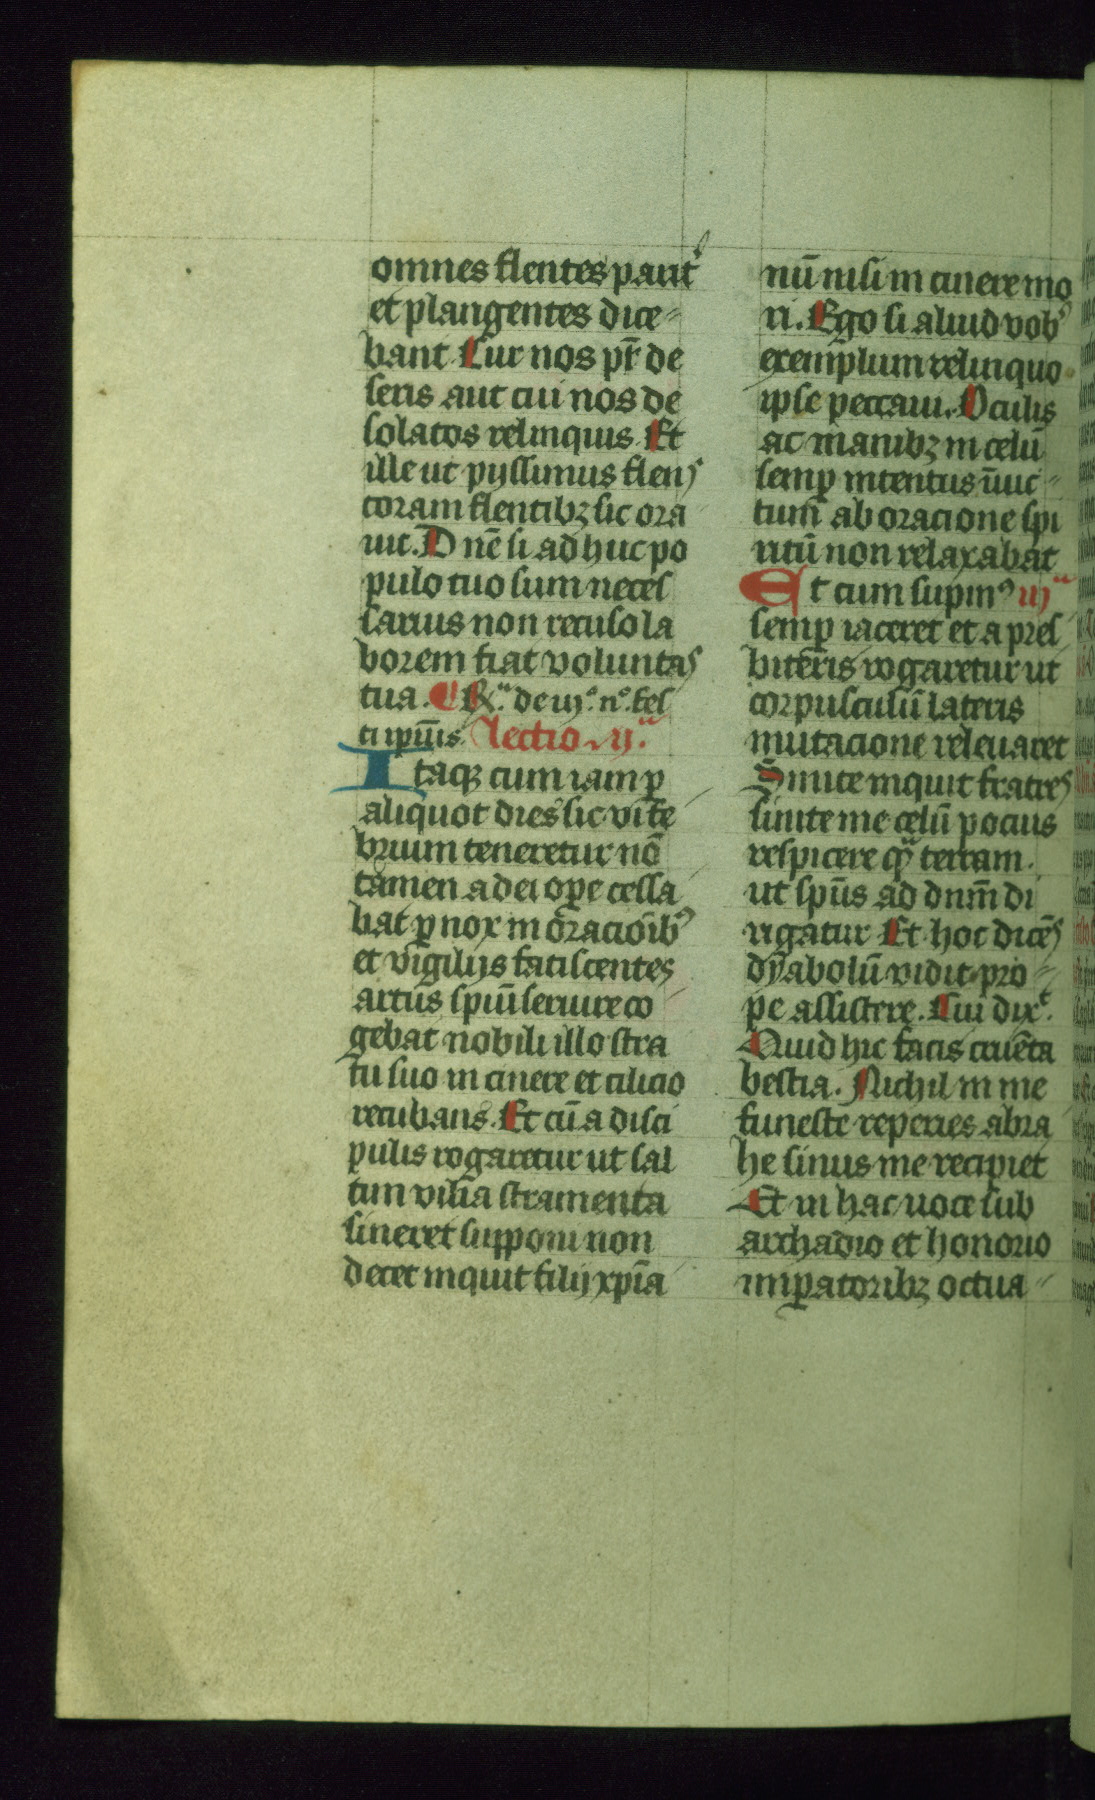 omnes flentes parit᷑
et plangentes dice-
bant Cur nos pr̄ de
seris aut cui nos de
solatos relinquis Et
ille ut pijssimus flens
coram flentibꝫ sic ora
uit. Dnē si adhuc po
pulo tuo sum neces
sarius non recuso la
borem fiat voluntas
tua. ¶ R̷. de iij.º n.º fes
ti ip̄ius Lectio ij.ª
Itaqꝫ cum iam ꝑ
aliquot dies sic vi fe
brium teneretur nō
tamen a dei oꝑe cessa
bat ꝑnox in oracionibꝰ
et vigilijs fatiscentes
artus spiū seruire co
gebat nobili illo stra
tu suo in cinere et cilicio
recubans. Et cū a disci
pulis rogaretur ut sal
tim vilia stramenta
sineret supponi non
decet inquit filij xp̄ia
nū nisi in cinere mo
ri. Ego si aliud vobꝰ
exemplum relinquo
ipse peccaui. Oculis
ac manibꝫ in celū
semꝑ intentus inuic-
tum ab oracione spi
ritū non relaxabat
Et cum supinꝰ iij.ª
semꝑ iaceret et a pres
biteris rogaretur ut
corpusculū lateris
mutacione releuaret
Sinite inquit fratres
sinite me celū pocius
respicere qᷓ terram.
ut spūs ad dnm̄ di
rigatur Et hoc dicēs
dyabolū vidit pro-
pe assistere. Cui dix᷑.
Quid hic facis cruēta
bestia. Nichil in me
funeste reperies abra
he sinus me recipiet
Et in hac uoce sub
archadio et honorio
imꝑatoribꝫ octua-